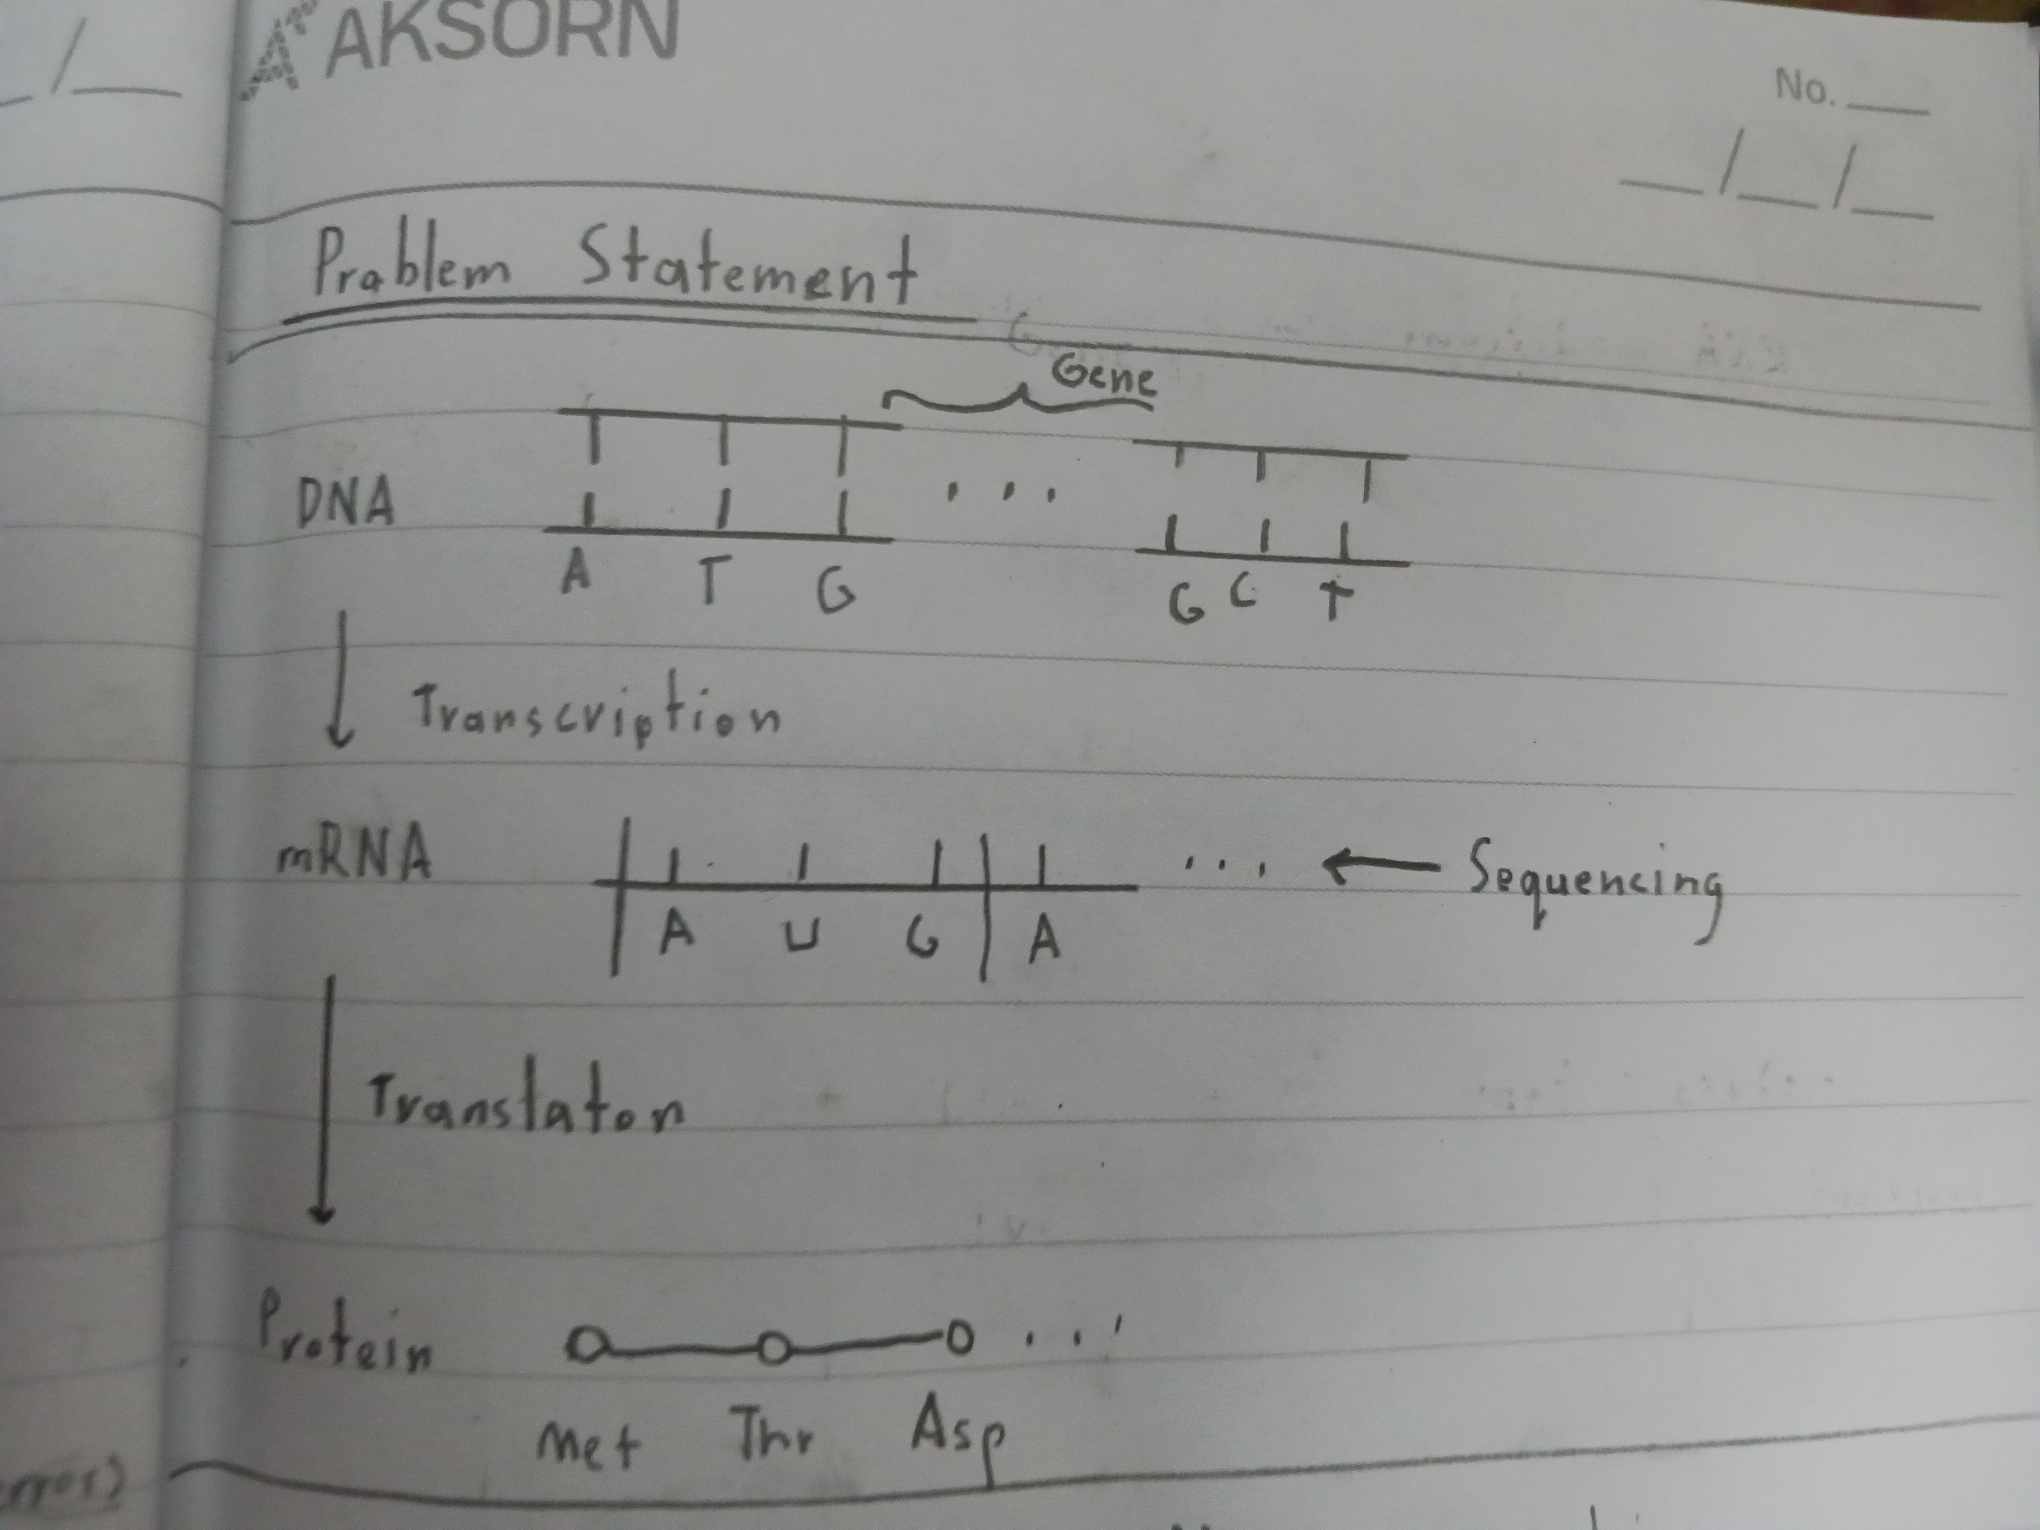 AKSORN
No.
Problem Statement
Gene
DNA
A T G ... G C T
Transcription
mRNA
A U G A ... ← Sequencing
Translaton
Protein
Met Thr Asp